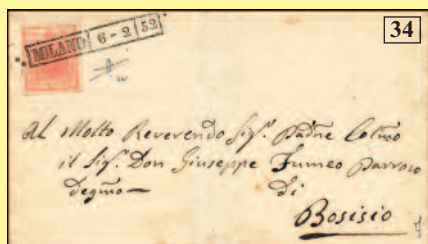 34
MILANO 6-2 52
Al Molto Reverendo Sig.r Padne
il Sig.r Don Giuseppe Fumeo Parroco
degmo
di
Bosisio